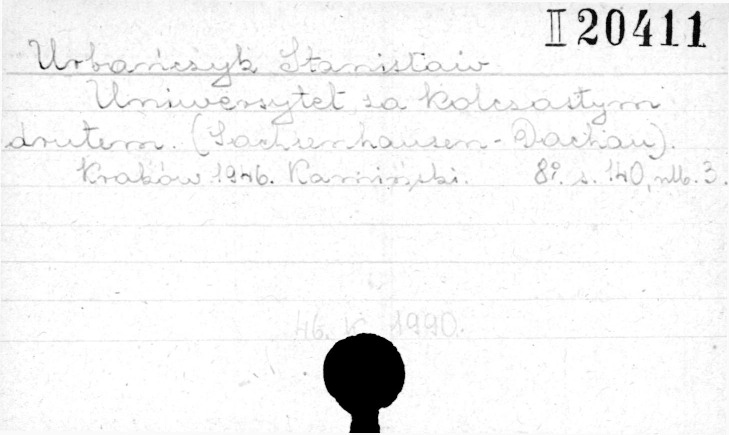 II 20411
Urbańczyk Stanisław
Uniwersytet za kolczastym
drutem. (Sachsenhausen-Dachau).
Kraków 1946. Kamiński. 8º. s. 140, nlb. 3.
46. K. 1990.